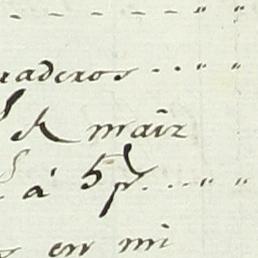 - - - - - - - " "
raderos - - - " "
R maiz
á 5 p. - - - " "
en mi